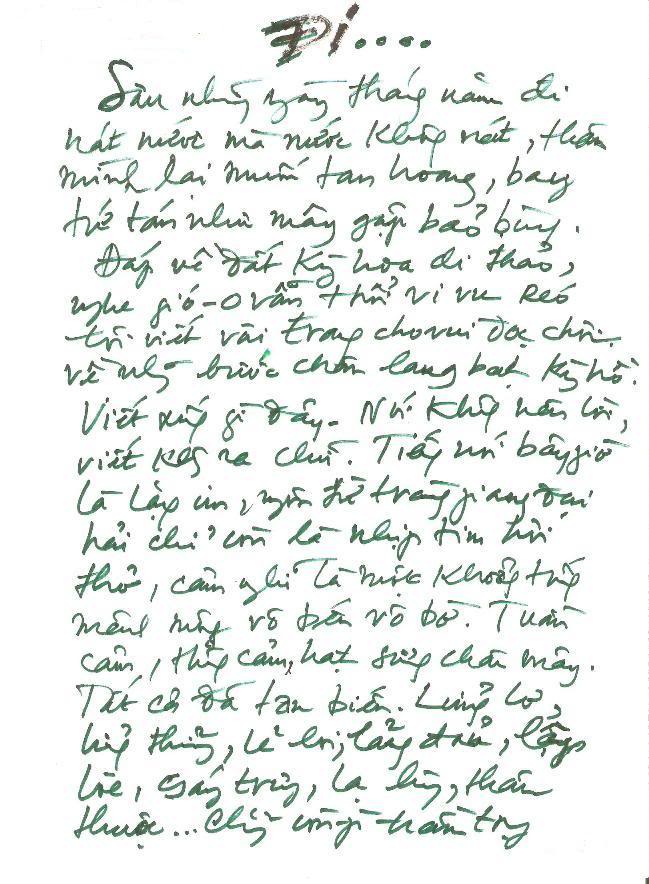 Đi....
Sau những ngày tháng năm đi
nát nước mà nước không nát, thân
mình lại muốn tan hoang, bay
tứ tán như mây gặp bão bùng.
Đáp về đất Kỳ hoa dị thảo,
nghe gió-O vẫn thổi vi vu réo
tôi viết vài trang cho vui đọc chơi
về những bước chân lang bạt kỳ hồ.
Viết xứng gì đây. Nói không nên lời,
viết không ra chữ. Tiếng nói bây giờ
là lặng im, ngôn từ tràng giang đại
hải chỉ còn là nhịp tim hơi
thở, cảm nghĩ là một khoảng trống
mênh mông vô bến vô bờ. Tuần
cảm, thống cảm, hạt sương chân mây.
Tất cả đã tan biến. Lửng lơ,
hững thững, lẻ loi,
lòe, gẫy trũng, lạ lùng, thân
thuộc... Chẳng còn gì trầm trọng